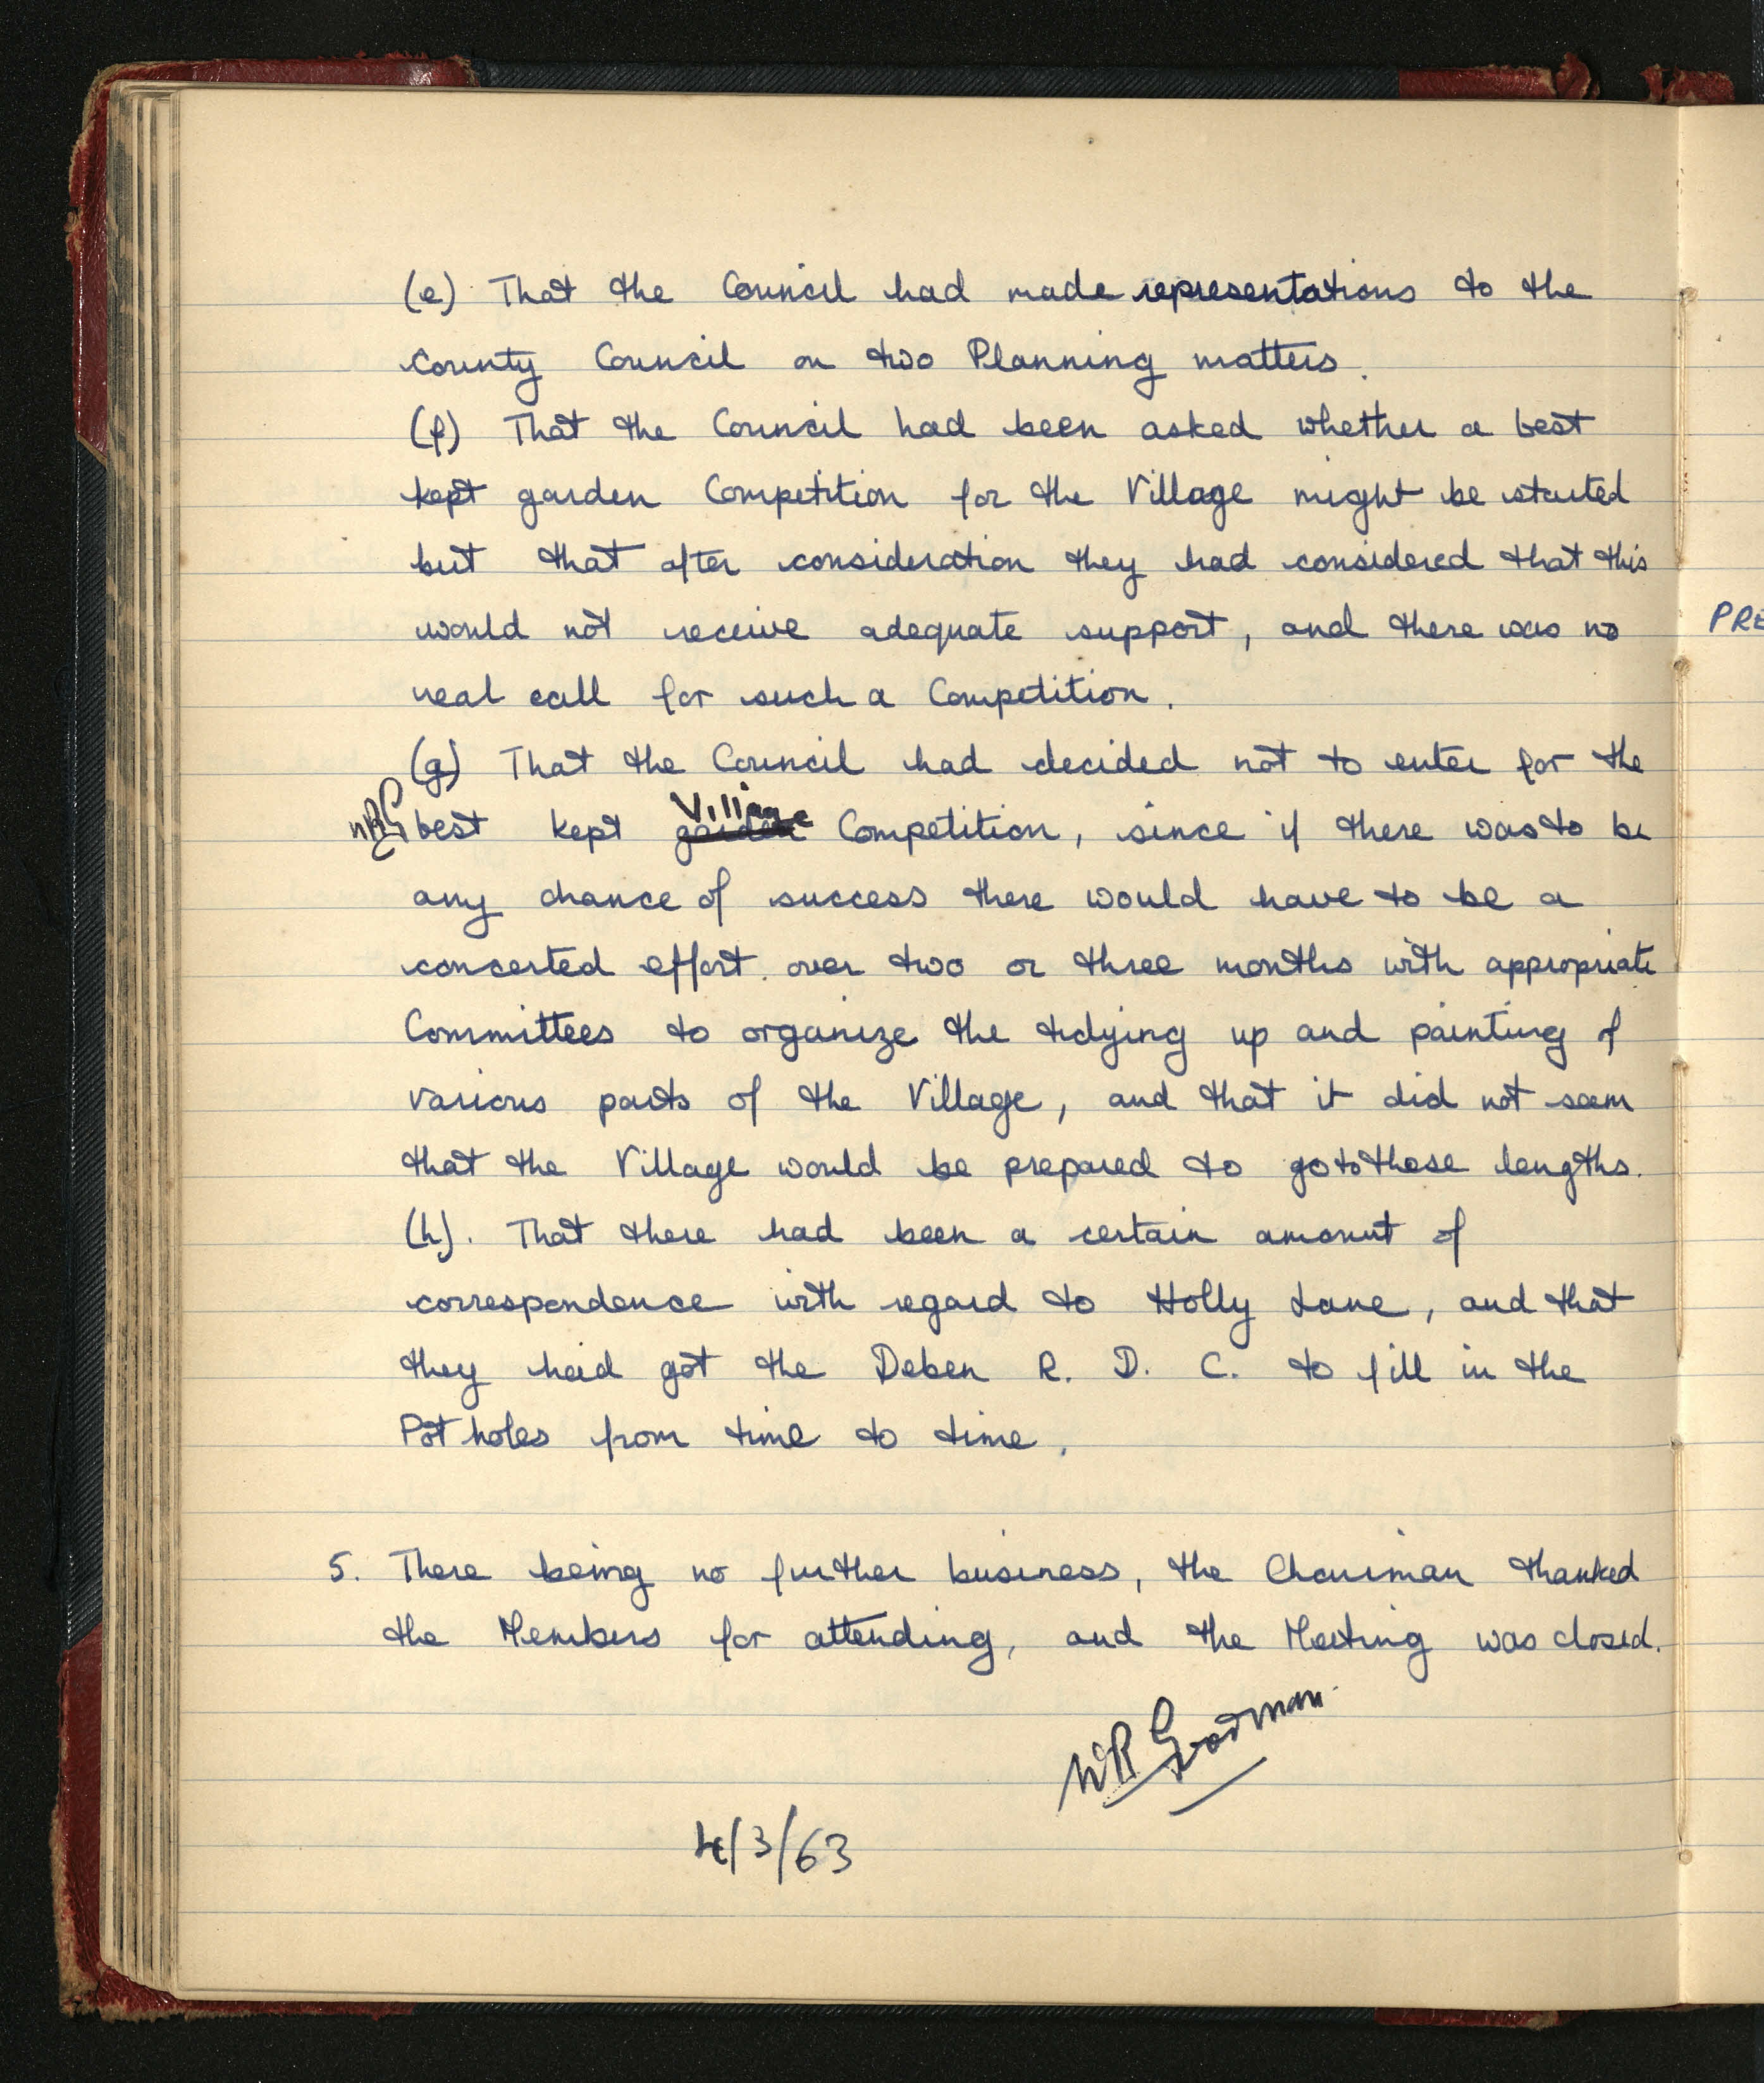 (e) That the Council had made representations to the
County Council on two Planning matters.
(f) That the Council had been asked whether a best
kept garden Competition for the Village might be started
but that after consideration they had considered that this
would not receive adequate support, and there was no
real call for such a Competition.
(g) That the Council had decided not to enter for the
WRG best kept garden Village Competition, since if there was to be
any chance of success there would have to be a
concerted effort over two or three months with appropriate
Committees to organize the tidying up and painting of
various parts of the Village, and that it did not seem
that the Village would be prepared to go to these lengths.
(h). That there had been a certain amount of
correspondence with regard to Holly Lane, and that
they had got the Deben R. D. C. to fill in the
Pot holes from time to time.
5. There being no further business, the Chairman thanked
the Members for attending, and the Meeting was closed.
WR Goodman
4/3/63
PRE